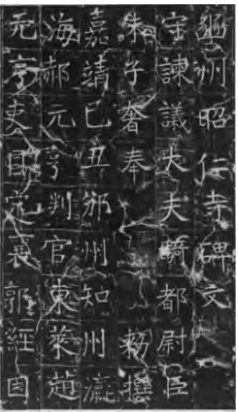 豳州昭仁寺碑文
守諫議大夫騎都尉臣
朱子奢奉 勑撰
嘉靖己丑邠州知州瀛
海郝元亨判官東萊趙
元亨吏目定襄郭經因